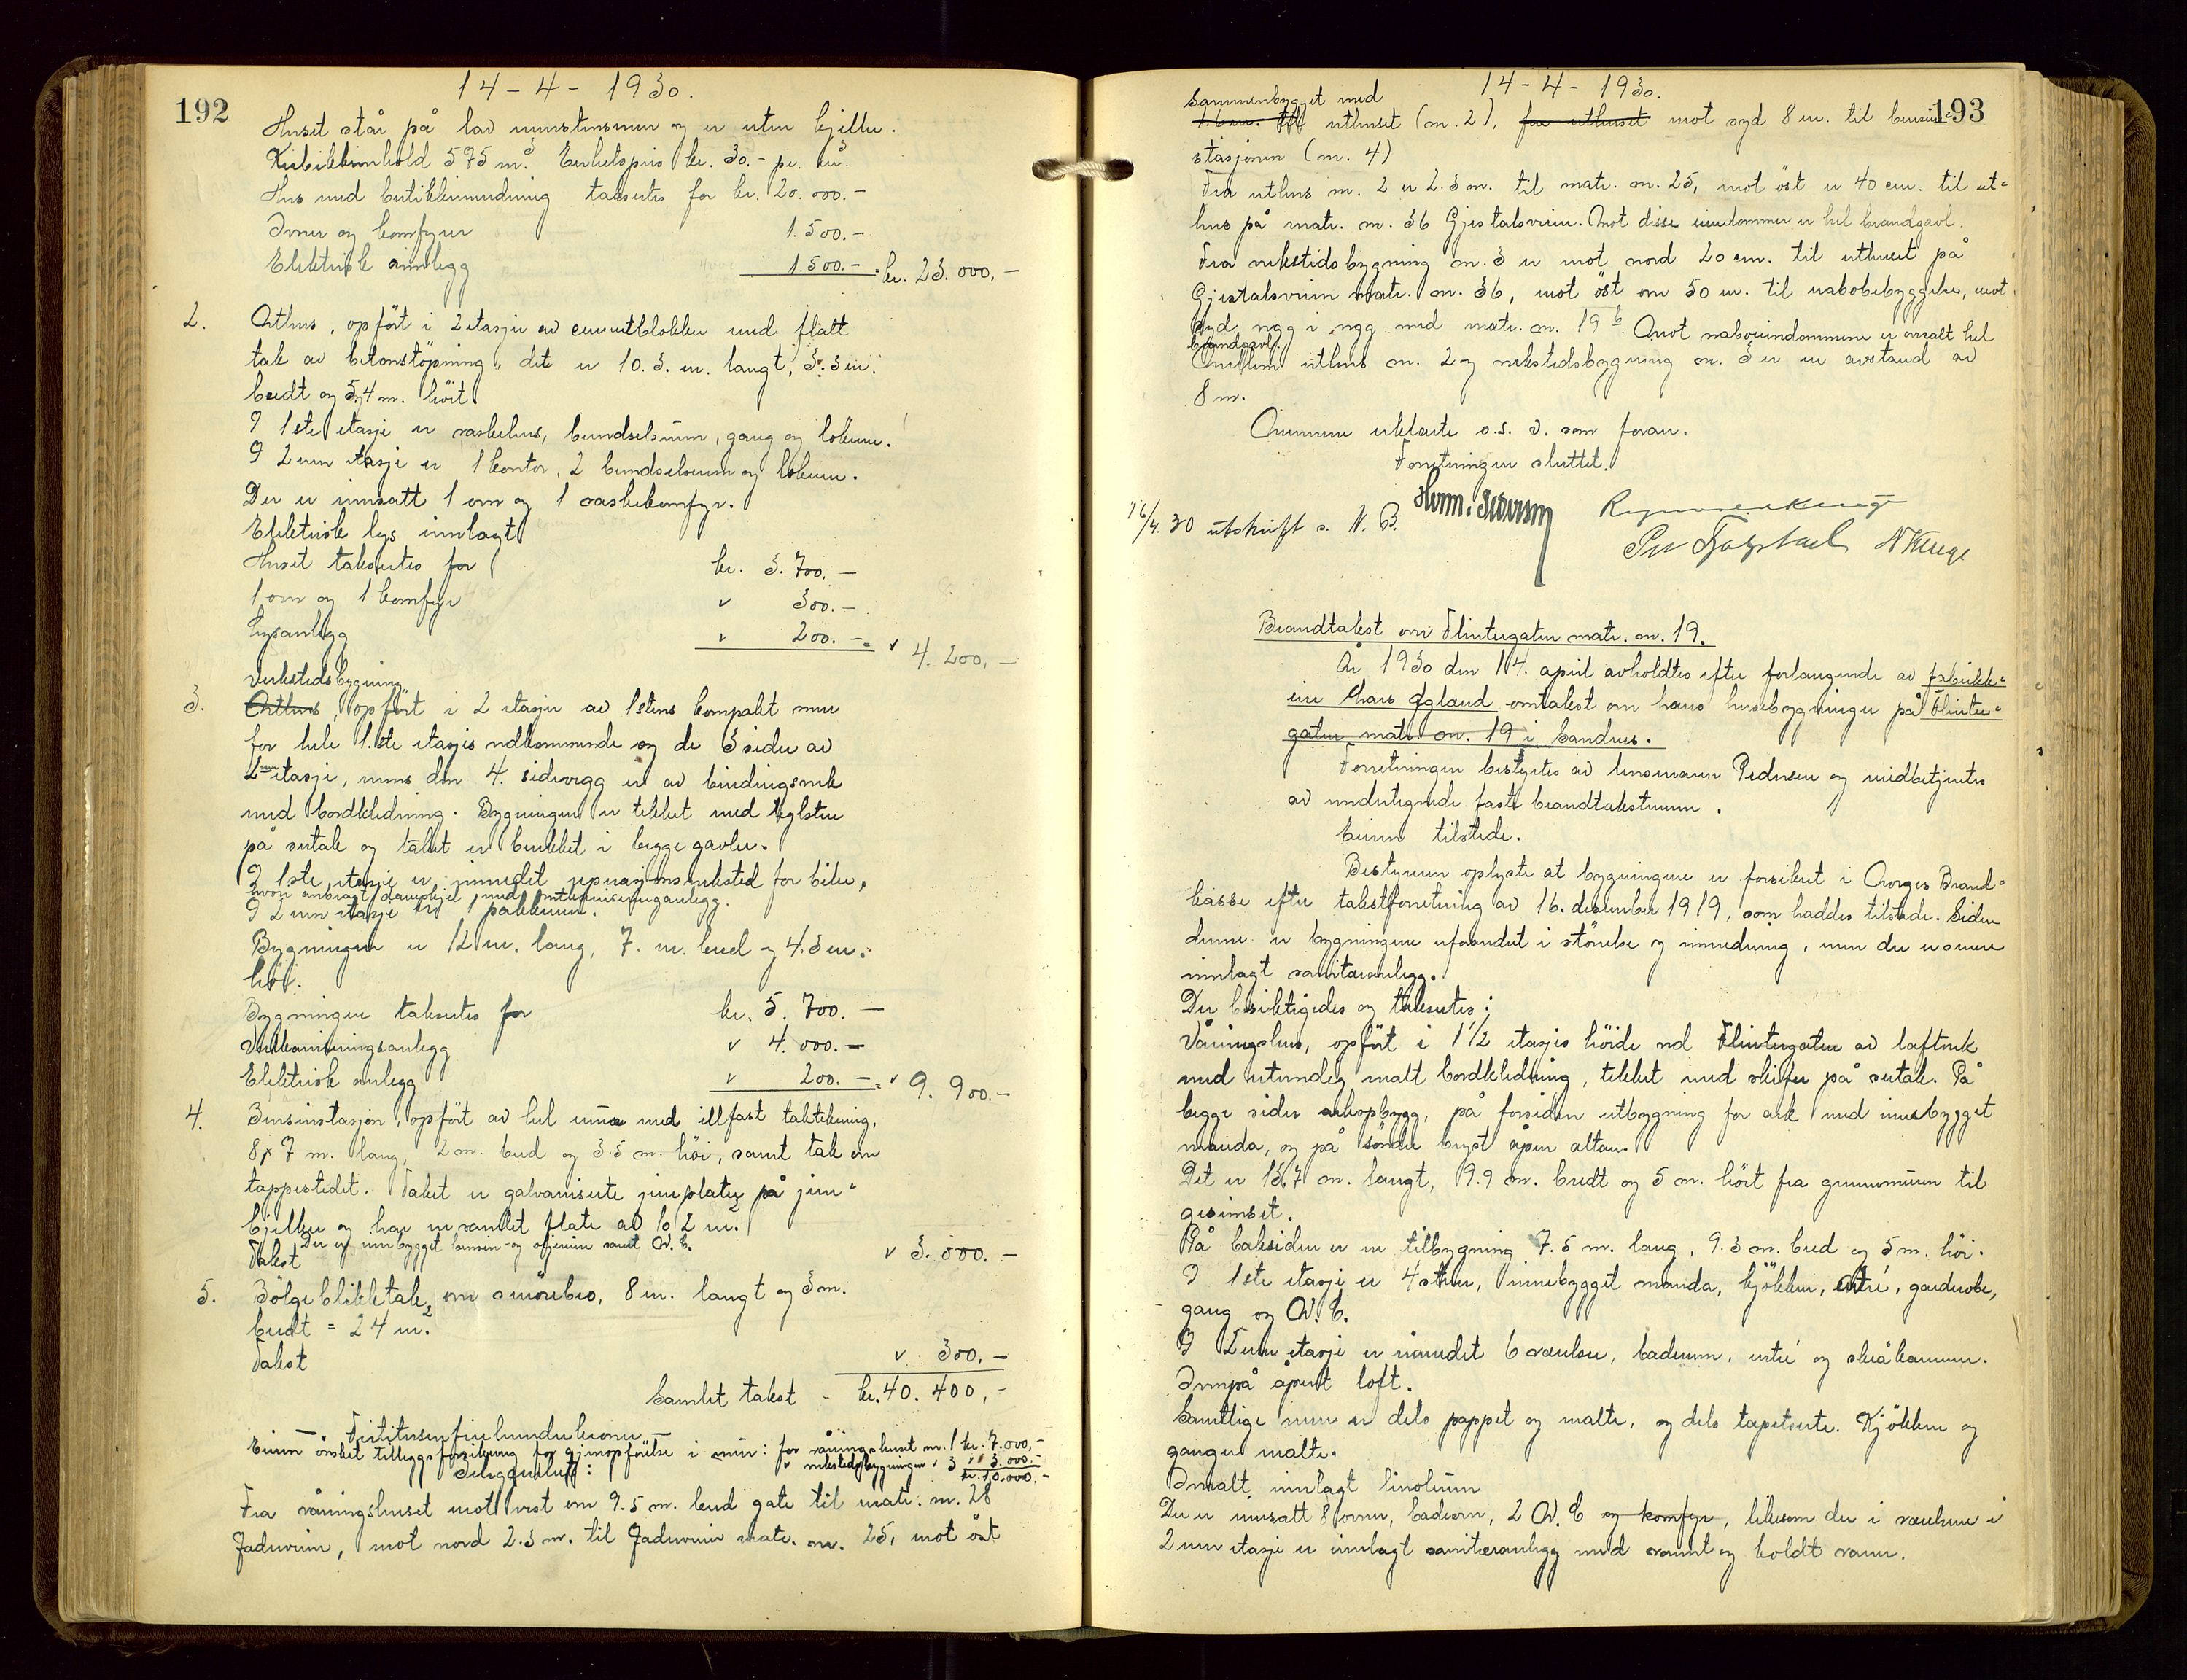 192
14-4-1930.
Huset står på lav murstensmur og er uten kjeller.
Kubikkinnhold 575 m.³ Enhetspris kr. 30.- pr. m³.
Hus med butikkinnredning takseres for kr. 20.000.-
Ovner og komfyrer 1.500.-
Elektrisk innlegg 1.500.- kr. 23.000,-
2. Uthus, opfört i 2 etasjer av cementblokker med flatt
tak av betonstöpning, det er 10.3. m. langt, 3.3 m.
bredt og 5,4 m. höit.
I 1ste etasje er vaskehus, brendselsrum, gang og lokum.
I 2nen etasje er 1 kontor, 2 brendselsrum og lokum.
Der er innsatt 1 ovn og 1 vaskekomfyr.
Elektrisk lys innlagt
Huset takseres for kr. 3.700.-
1 ovn og 1 komfyr " 300.-
Lysanlegg " 200.- = " 4.200,-
Verkstedsbygning
3. Uthus, opfört i 2 etasjer av 1stens kompakt mur
for hele 1.ste etasjes vedkommende og de 3 sider av
2nen etasje, mens den 4. sidevegg er av bindingsverk
med bordkledning. Bygningen er tekket med teglsten
på sutak og taket er brekket i begge gavler.
I 1ste etasje er innredet reparasjonsverksted for biler,
hvori anbragt dampkjel med vulkaniseringanlegg.
I 2nen etasje er 1 pakkrum.
Bygningen er 12 m. lang, 7. m. bred og 4.3 m.
höi.
Bygningen takseres for kr. 5.700.-
Vulkaniseringsanlegg " 4.000.-
Elektrisk anlegg " 200.- = " 9.900.-
4. Bensinstasjon, opfört av hel mur med illfast taktekning,
8,7 m. lang, 2 m. bred og 3.5 m. höi, samt tak over
tappestedet. Taket er galvaniserte jernplater på jern-
bjelker og har en samlet flate av 62 m.²
Der er innbygget bensin- og oljerum samt W.C.
Takst " 3.000.-
5. Bölgeblikktak, over smörebro, 8 m. langt og 3 m.
bredt = 24 m.²
Takst " 300.-
Samlet takst - kr. 40.400,-
- Förtitusenfirehundrekroner -
Eieren önsket tilleggsforsikring for gjenopförelse i mur: for våningshuset nr. 1 kr. 7.000,-
" verkstedsbygningen " 3 " 3.000.-
kr. 10.000.-
Beliggenhet:
Fra våningshuset mot vest er 9.5 m. bred gate til matr. nr. 28
Jadarveien, mot nord 2.3 m. til Jadarveien matr. nr. 25, mot öst
193
14-4-1930.
Sammenbygget med
uthuset (nr. 2), fra uthuset mot syd 8 m. til bensin-
stasjonen (nr. 4)
Fra uthus nr. 2 er 2.3 m. til matr. nr. 25, mot öst er 40 cm. til ut-
hus på matr. nr. 36 Gjestalsveien. Mot disse eiendommer er hel brandgavl.
Fra verkstedsbygning nr. 3 er mot nord 20 cm. til uthuset på
Gjestalsveien matr. nr. 36, mot öst om 50 m. til nabobebyggelse, mot
syd vegg i vegg med matr. nr. 19 b. Mot naboeiendommene er overalt hel
brandgavl.
Emellem uthus nr. 2 og verkstedsbygning nr. 3 er en avstand av
8 m.
Rummene erklærte o.s.v. som foran.
Forretningen sluttet.
16/4. 30 utskrift s. N. B.
Herm. Pedersen
Brandtakst over Flintergaten matr. nr. 19.
År 1930 den 14. april avholdtes efter forlangende av fabrikk-
eier Hans Øgland omtakst over hans husebygninger på Flinter-
gaten matr. nr. 19 i Sandnes.
Forretningen bestyrtes av lensmann Pedersen og medbetjentes
av undertegnede faste brandtakstmenn.
Eieren tilstede.
Bestyreren oplyste at bygningene er forsikret i Norges Brand-
kasse efter takstforretning av 16. desember 1919, som haddes tilstede. Siden
denne er bygningene uforandret i störrelse og innredning, men der er senere
innlagt sanitæranlegg.
Der besiktigedes og takseres:
Våningshus, opfört i 1 1/2 etasjes höide ved Flintergaten av laftverk
med utvendig malt bordkledning, tekket med skifer på sutak. På
begge sider arkopbygg, på forsiden utbygning for ark med innebygget
veranda, og på söndre bryst åpen altan.
Det er 13,7 m. langt, 9.9 m. bredt og 5 m. höit fra grunnmuren til
gesimset.
På baksiden er en tilbygning 7.5 m. lang, 9.3 m. bred og 5 m. höi.
I 1ste etasje er 4 stuer, innebygget veranda, kjökken, entré, garderobe,
gang og W.C.
I 2nen etasje er innredet 6 værelser, baderum, entré og skråkammer.
Ovenpå åpent loft.
Samtlige rum er dels pappet og malte, og dels tapetserte. Kjökken og
ganger malte.
Overalt innlagt linoleum
Der er innsatt 8 ovner, badeovn, 2 W.C og komfyr, likesom der i værelsene i
2nen etasje er innlagt sanitæranlegg med varmt og koldt vann.